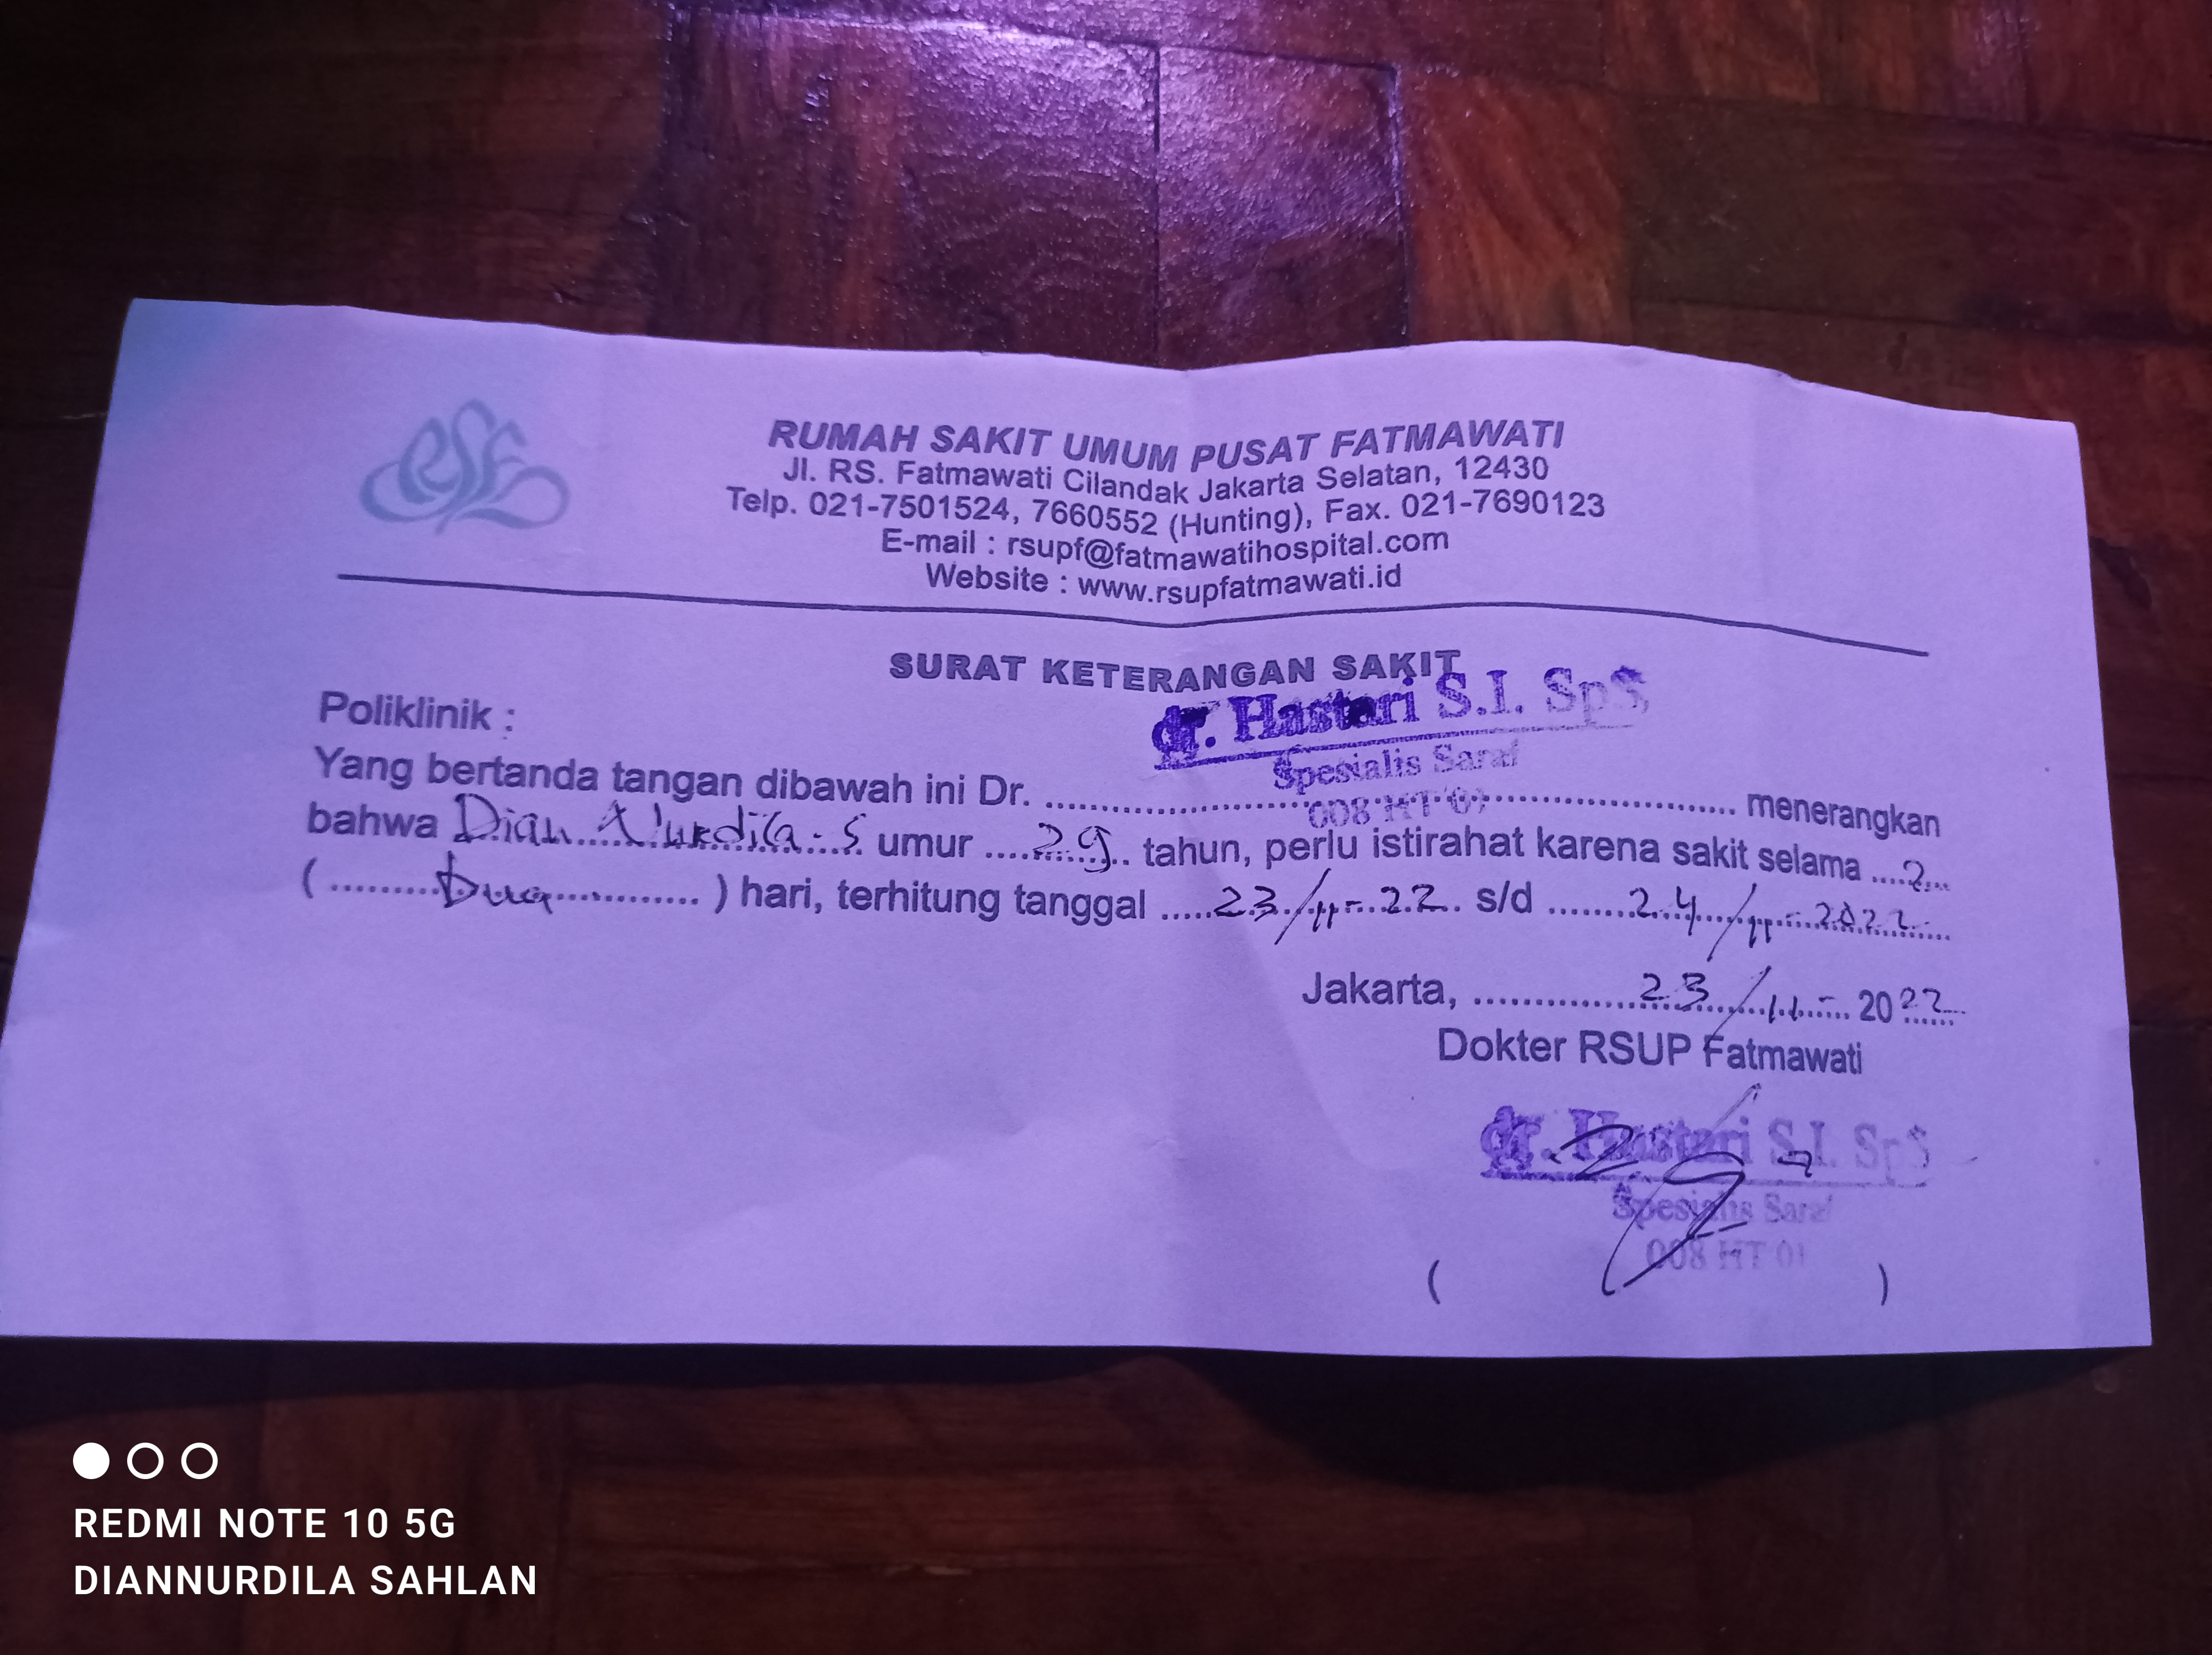 RSF
RUMAH SAKIT UMUM PUSAT FATMAWATI
Jl. RS. Fatmawati Cilandak Jakarta Selatan, 12430
Telp. 021-7501524, 7660552 (Hunting), Fax. 021-7690123
E-mail : rsupf@fatmawatihospital.com
Website : www.rsupfatmawati.id
SURAT KETERANGAN SAKIT
Poliklinik :
dr. Hastari S.I. SpS
Spesialis Saraf
008 HT 01
Yang bertanda tangan dibawah ini Dr. .................... menerangkan
bahwa Dian Nurdila. S umur 29 tahun, perlu istirahat karena sakit selama 2
( Dua ) hari, terhitung tanggal 23/11-22 s/d 24/11-2022
Jakarta, 23/11- 2022
Dokter RSUP Fatmawati
dr. Hastari S.I. SpS
Spesialis Saraf
008 HT 01
( )
REDMI NOTE 10 5G
DIANNURDILA SAHLAN